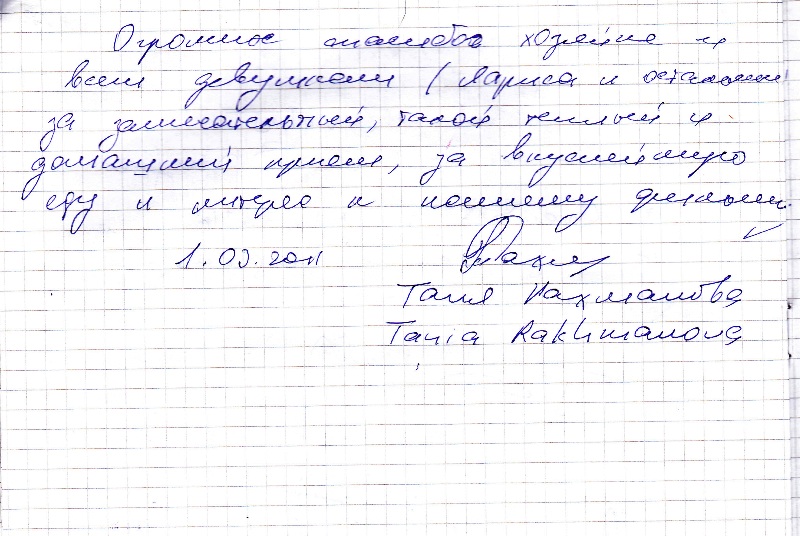 Огромное спасибо хозяйке и
всем девушкам (Лариса и остальные
за замечательный, такой теплый и
домашний прием, за вкуснейшую
еду и интерес к нашему фильму.
1.03.2011
Таня Рахманова
Tania Rakhmanova